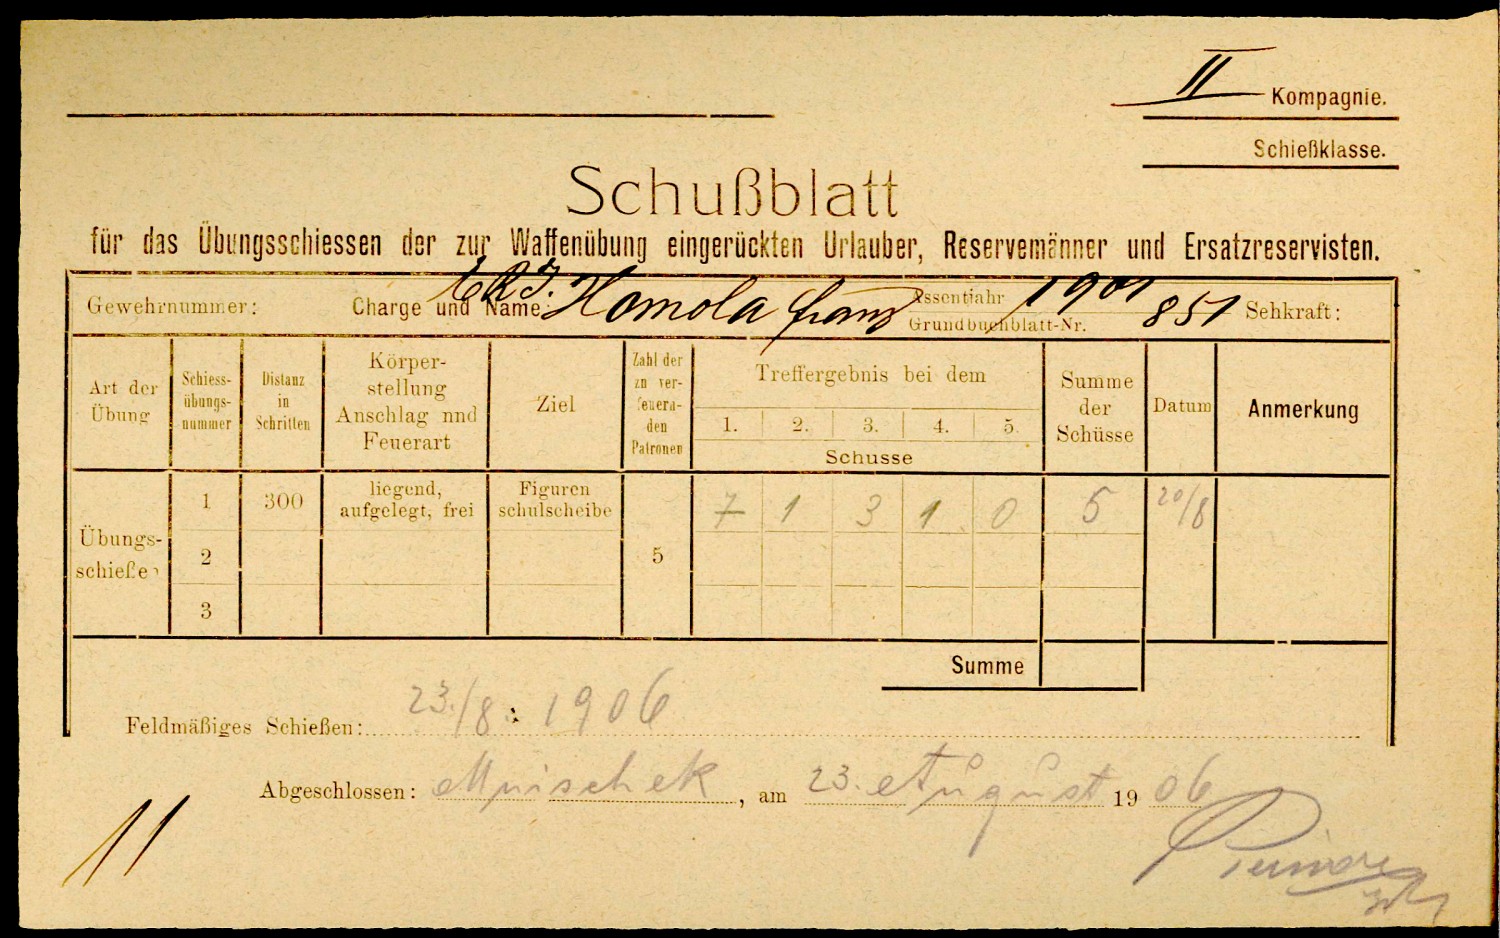 II Kompagnie.
Schießklasse.
Schußblatt
für das Übungsschiessen der zur Waffenübung eingerückten Urlauber, Reservemänner und Ersatzreservisten.
Gewehrnummer: Charge und Name: Homola Franz Assentjahr 1901 Grundbuchblatt-Nr. 851 Sehkraft:
Art der Übung
Schiess-übungs-nummer
Distanz in Schritten
Körper-stellung Anschlag nnd Feuerart
Ziel
Zahl der zu ver-feuern-den Patronen
Treffergebnis bei dem
1. 2. 3. 4. 5.
Schusse
Summe der Schüsse
Datum
Anmerkung
Übungs-schießen
1 300 liegend, aufgelegt, frei Figuren schulscheibe 5 7 1 3 1 0 5 20/8
2
3
Summe
Feldmäßiges Schießen: 23./8. 1906
Abgeschlossen: Mnischek, am 23. August 1906
11